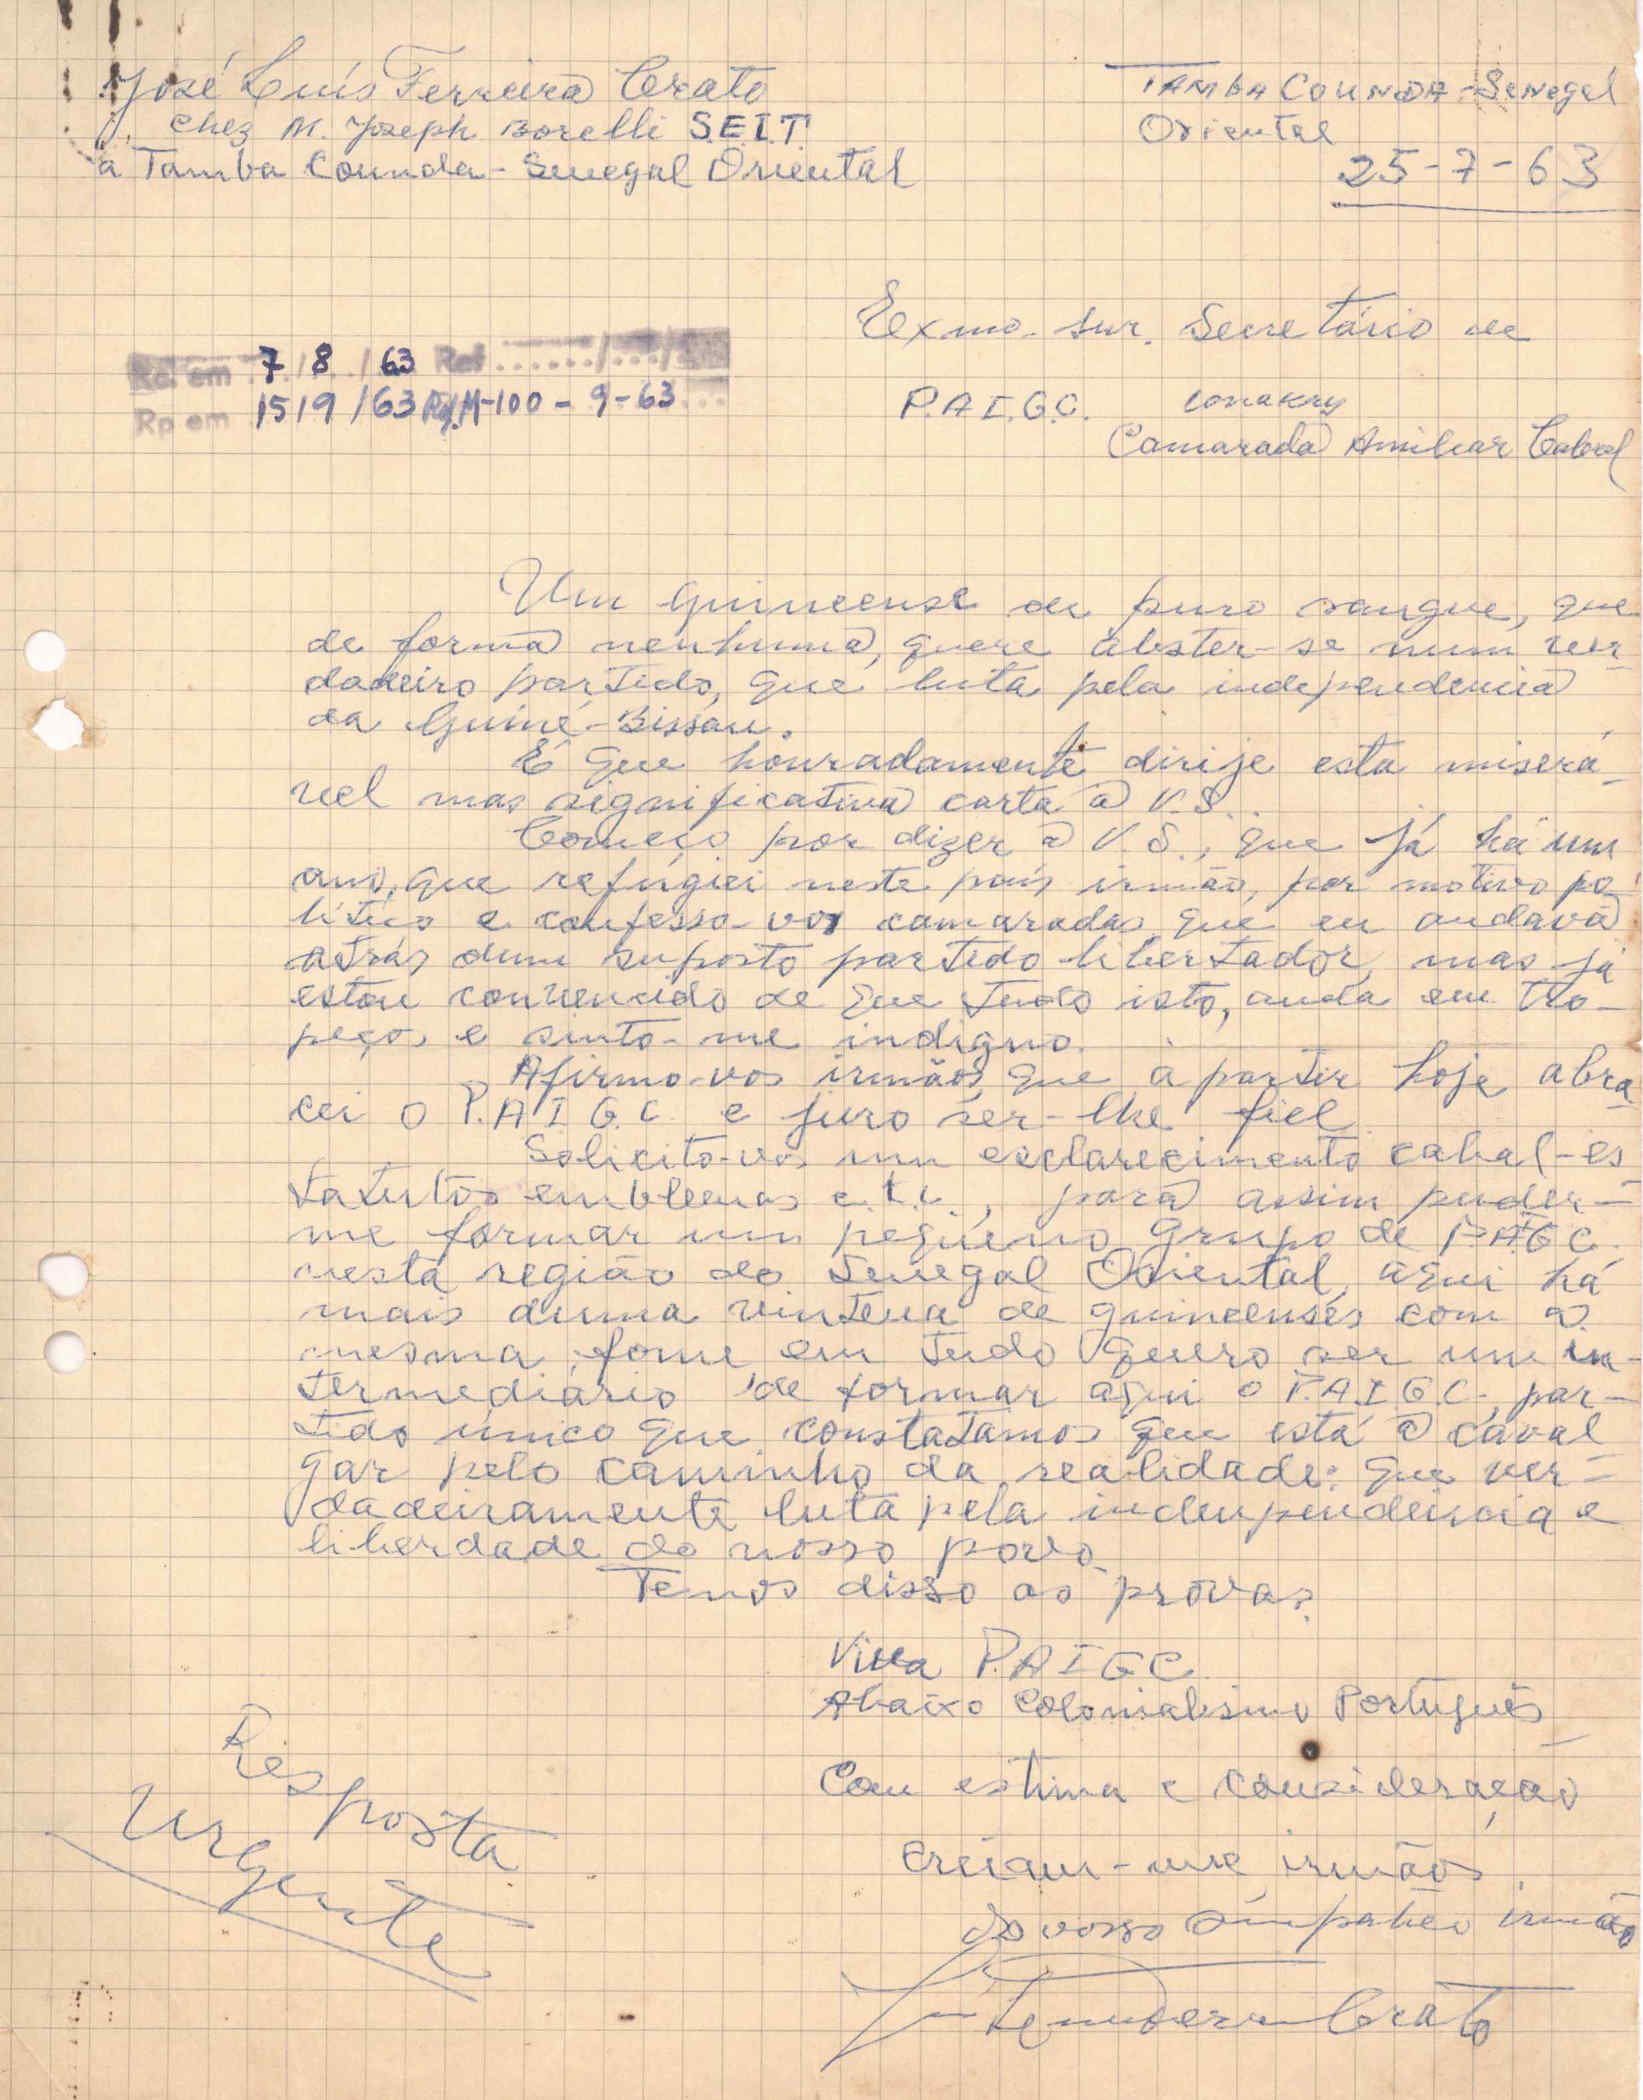 José Luís Ferreira Crato
chez M. Joseph Borelli S.E.I.T.
a Tamba Counda - Senegal Oriental
TAMBA COUNDA - Senegal
Oriental
25-7-63
Exmo. Snr. Secretário de
P.A.I.G.C. Conakry
Camarada Amilcar Cabral
Rc. em 7/8/63 Ref ....../.../...
Rp em 15/9/63 Rf. M-100-9-63
Um guineense de puro sangue, que
de forma nenhuma, quere abster-se num ver-
dadeiro partido, que luta pela independencia
da Guiné-Bissau.
É que honradamente dirije esta miserá-
vel mas significativa carta a V.S.
Começo por dizer a V.S., que já há um
ano, que refúgiei neste país irmão, por motivo po-
lítico e confesso-vos camaradas que eu andava
atrás dum suposto partido libertador, mas já
estou convencido de que tudo isto, anda em tro-
peços e sinto-me indigno.
Afirmo-vos irmãos que à partir hoje abra-
cei o P.A.I.G.C. e juro ser-lhe fiel
Solicito-vos um esclarecimento cabal-es
tatutos emblemas e.t.c., para assim puder-
me formar um pequeno grupo de PAIGC.
nesta região do Senegal Oriental, aqui há
mais duma vintena de guineenses com a
mesma fome em tudo quero ser um in-
termediário de formar aqui o P.A.I.G.C., par-
tido único que constatamos que está a caval
gar pelo caminho da realidade: que ver-
dadeiramente luta pela indenpendeincia e
liberdade do nosso povo
Temos disso as provas.
Viva P.A.I.G.C.
Abaixo Colonialismo Português
Com estima e consideração
Creiam-me irmãos.
do vosso simpatico irmão
Crato
Resposta
Urgente